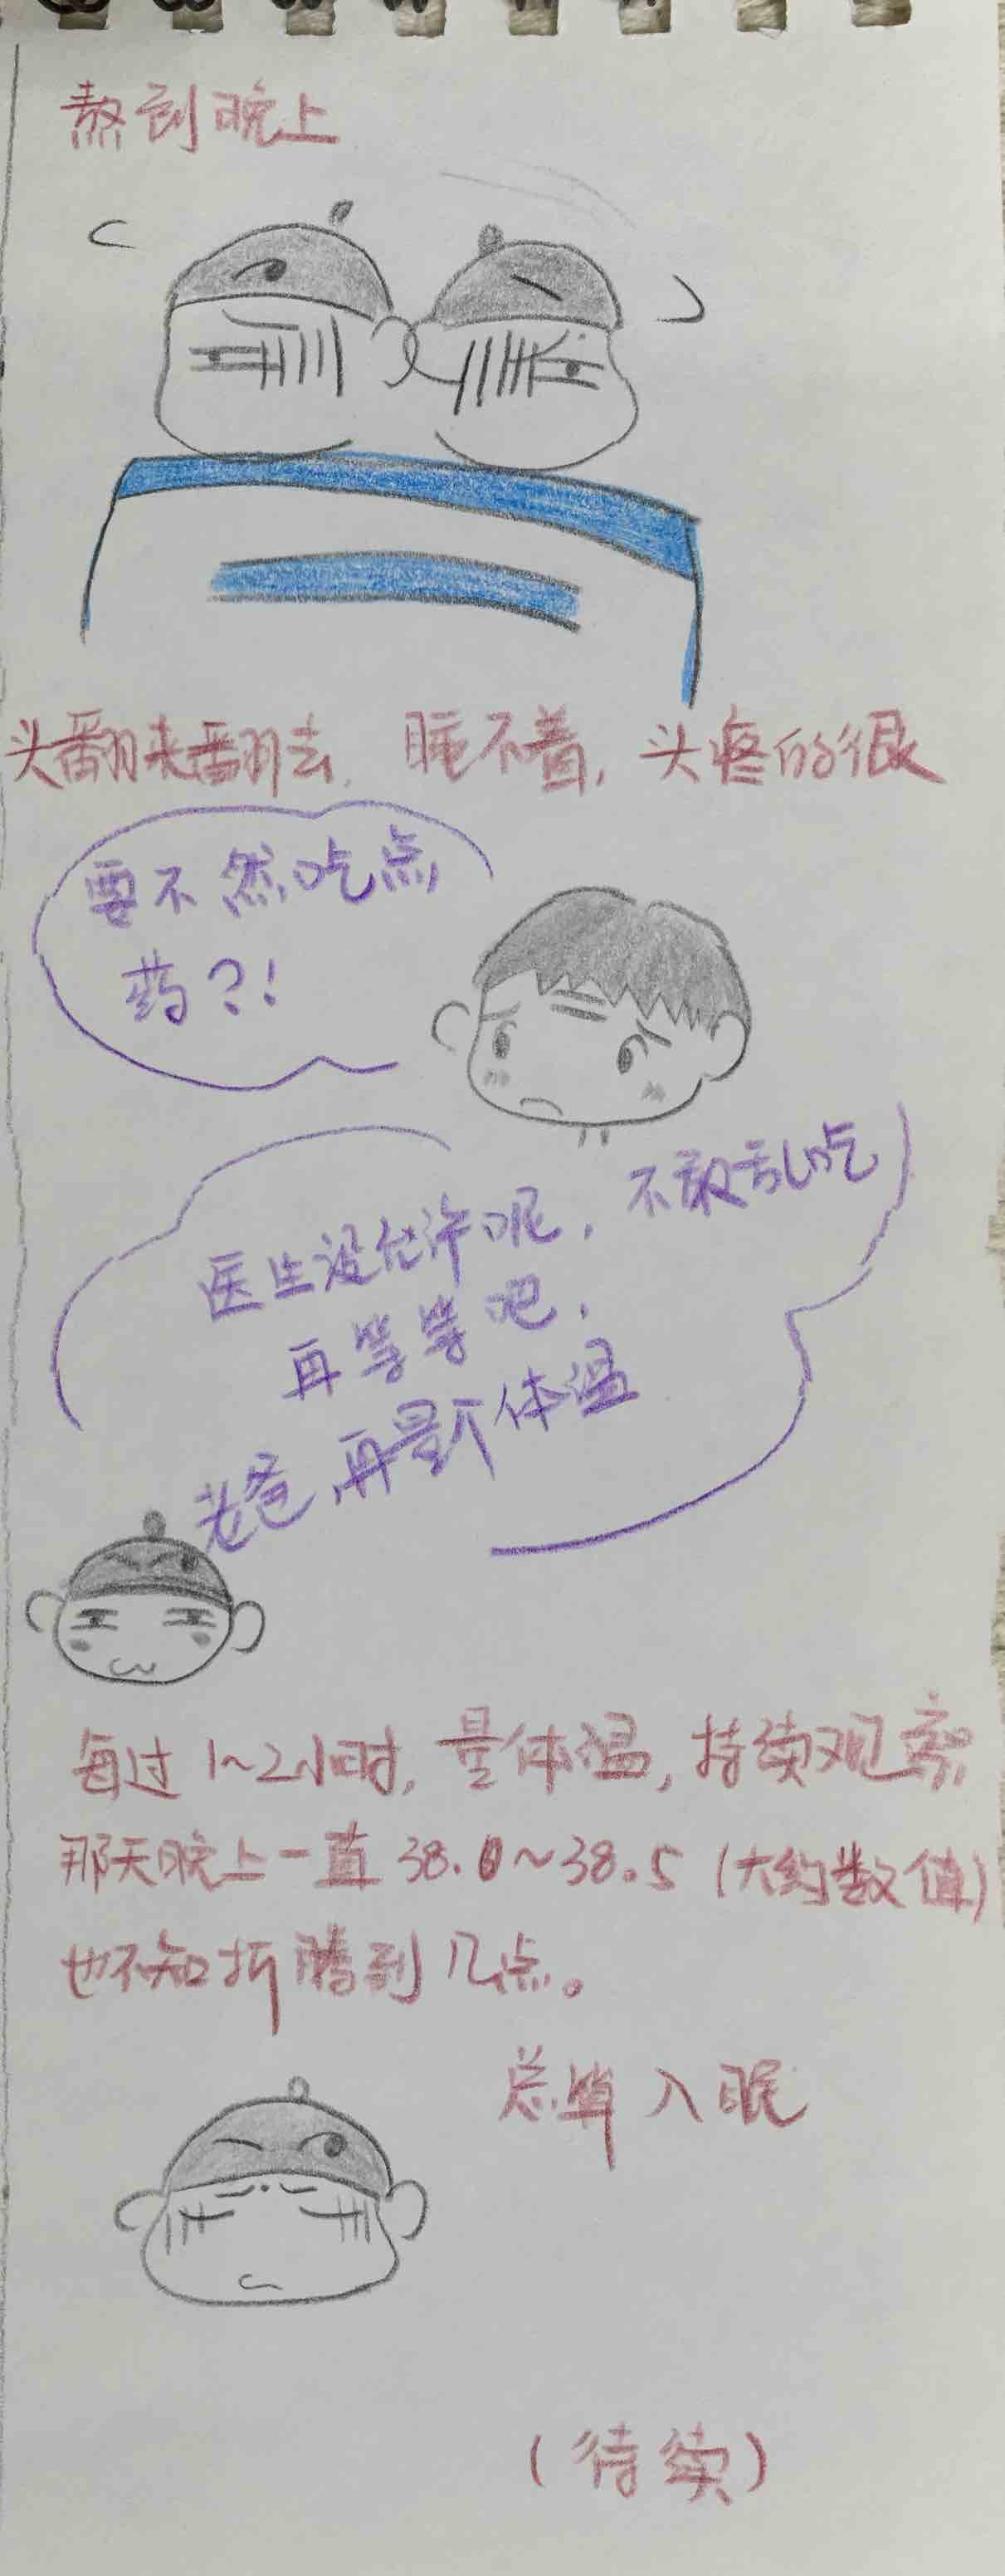 熬到晚上
头翻来翻去,睡不着,头疼的很
要不然吃点
药?!
医生没允许呢,不敢乱吃
再等等吧,
老爸,再量下体温
每过1~2小时,量体温,持续观察
那天晚上一直38.0~38.5(大约数值)
也不知折腾到几点。
总算入眠
(待续)